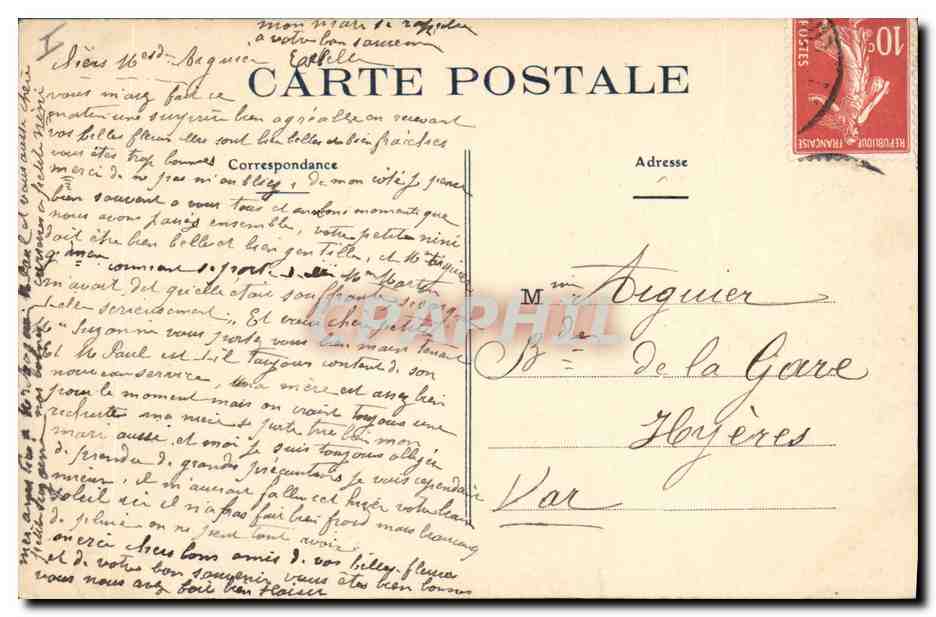 mon mari se rappelle
a votre bon souvenir
Chers Mesd Aiguier
CARTE POSTALE
vous m'avez fait ce
matin une surprise bien agréable en recevant
vos belles fleurs elles sont bien belles et bien fraiches
vous êtes trop bonnes
Correspondance
Adresse
merci de ne pas m'oublier, de mon côté je pense
bien souvent a vous tous et aux bons moments que
nous avons passés ensemble, votre petite nini
doit être bien belle et bien gentille, et Mme Aiguier
comment se porte elle Mme Martin
m'avait dit qu'elle était souffrante
elle sérieusement, Et vous chere petite
Mme Suzanne vous portez vous bien maintenant
Et Mr Paul est-il toujours content de son
nouveau service, Ma mère est assez bien
pour le moment mais on craint toujours une
rechute ma nièce se porte très bien mon
mari aussi, et moi je suis toujours obligée
de prendre de grandes précautions je vais cependant
mieux, il m'aurait fallu cet hiver votre beau
soleil ici il n'a pas fait bien froid mais beaucoup
de pluie on ne peut tout avoir
merci chers bons amis de vos belles fleurs
et de votre bon souvenir vous êtes bien bonnes
vous nous avez fait bien plaisir
Mme Aiguier
Bd de la Gare
Hyères
Var
10c
POSTES
REPUBLIQUE FRANÇAISE
CPAPHIL